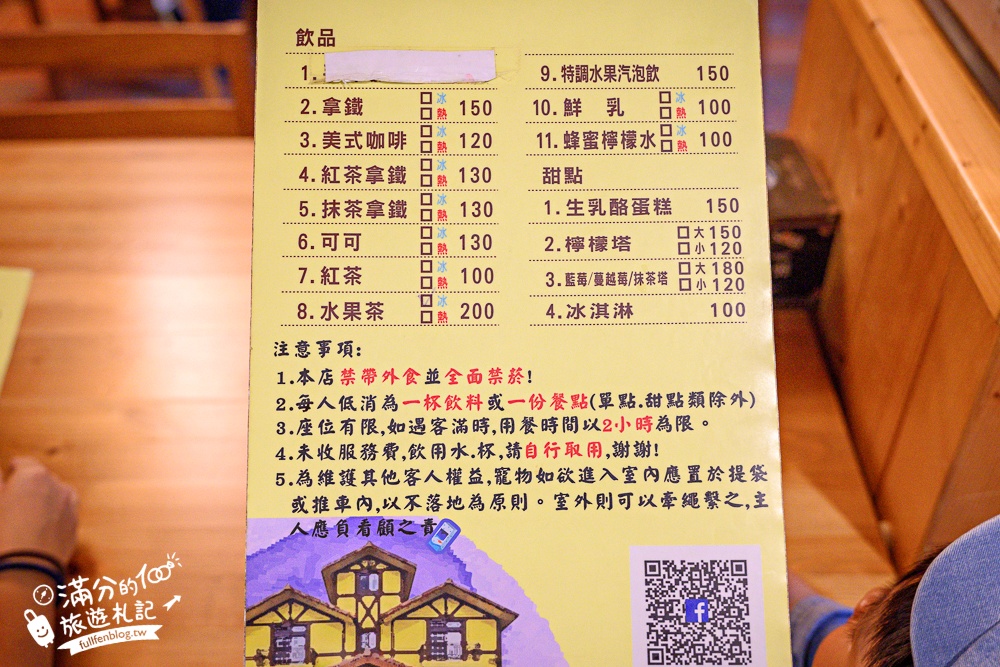 飲品
1.
2.拿鐵 冰 熱 150
3.美式咖啡 冰 熱 120
4.紅茶拿鐵 冰 熱 130
5.抹茶拿鐵 冰 熱 130
6.可可 冰 熱 130
7.紅茶 冰 熱 100
8.水果茶 冰 熱 200
9.特調水果汽泡飲 150
10.鮮 乳 冰 熱 100
11.蜂蜜檸檬水 冰 熱 100
甜點
1.生乳酪蛋糕 150
2.檸檬塔 大150 小120
3.藍莓/蔓越莓/抹茶塔 大180 小120
4.冰淇淋 100
注意事項:
1.本店禁帶外食並全面禁菸!
2.每人低消為一杯飲料或一份餐點(單點.甜點類除外)
3.座位有限,如遇客滿時,用餐時間以2小時為限。
4.未收服務費,飲用水.杯,請自行取用,謝謝!
5.為維護其他客人權益,寵物如欲進入室內應置於提袋
或推車內,以不落地為原則。室外則可以牽繩繫之,主
人應負看顧之責
滿分的100
旅遊札記
fullfenblog.tw